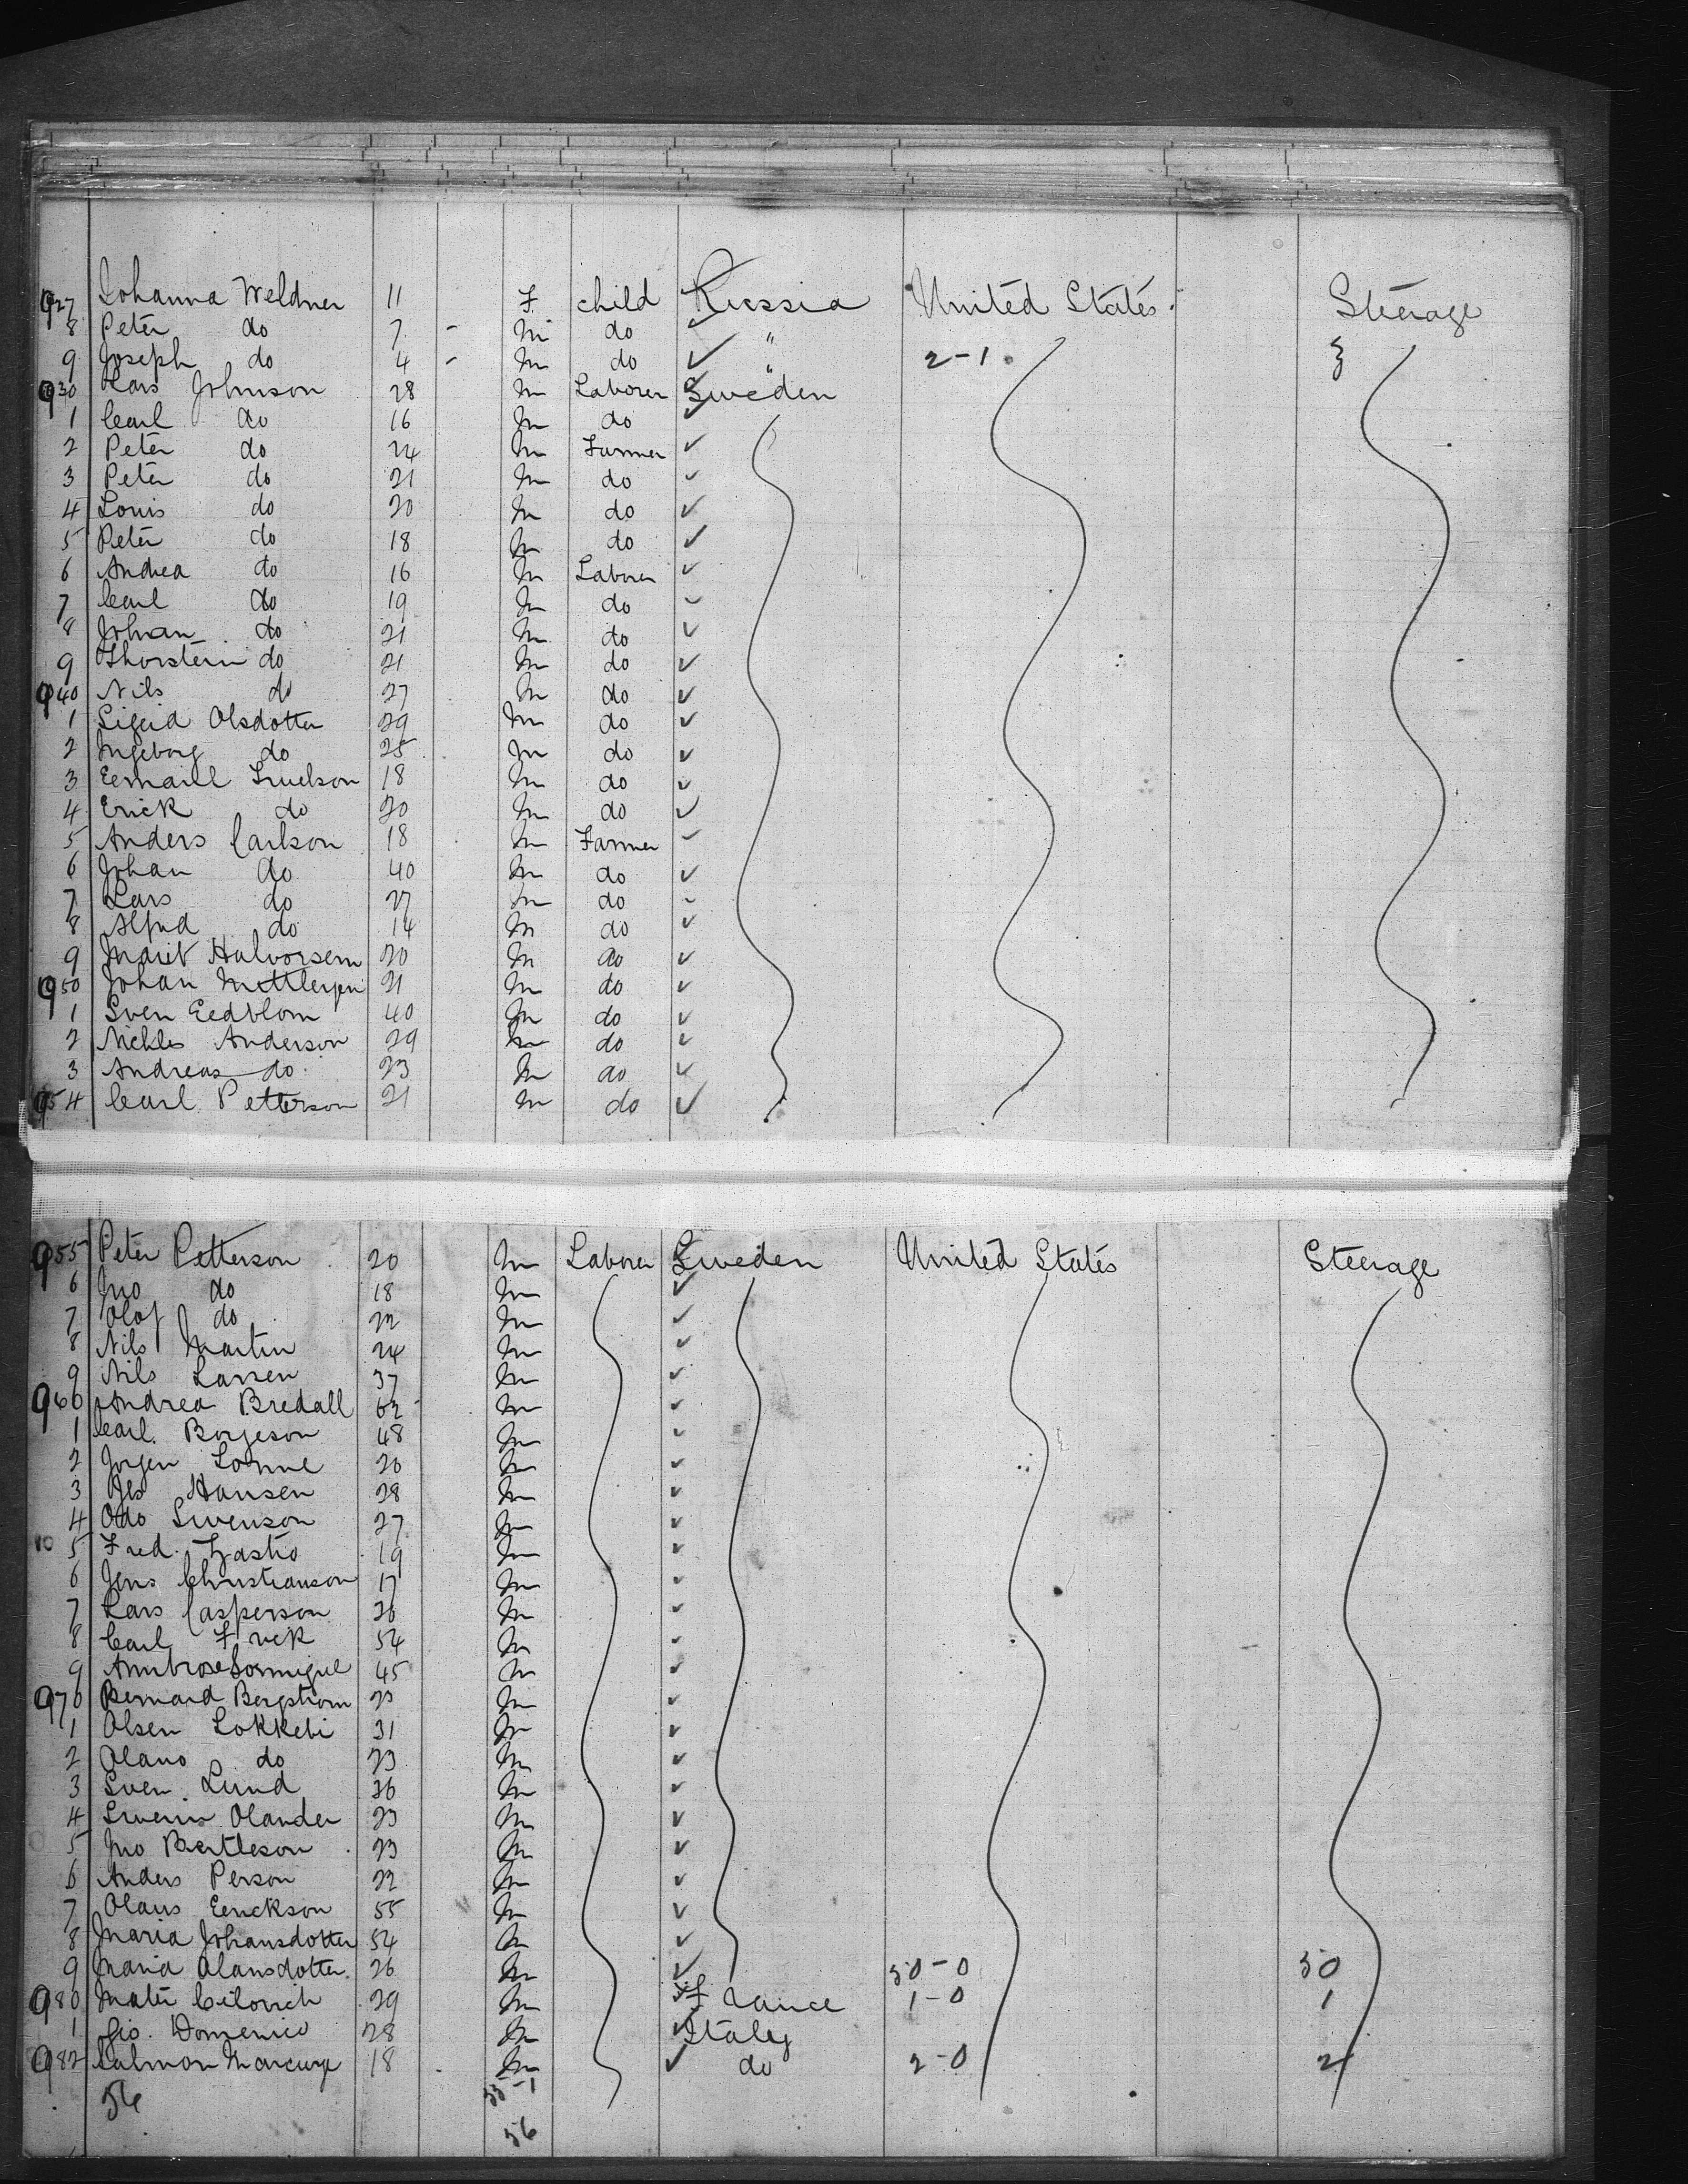 927 Johanna Weldner 11 F. child Russia United States. Steerage
8 Peter do 7 - m do "
9 Joseph do 4 - m do " 2-1 3
930 Lars Johnson 28 m Laborer Sweden
1 Carl do 16 m do
2 Peter do 24 m Farmer
3 Peter do 21 m do
4 Louis do 20 m do
5 Peter do 18 m do
6 Andrea do 16 m Laborer
7 Carl do 19 m do
8 Johan do 21 m do
9 Thorstein do 21 m do
940 Nils do 27 m do
1 Sigrid Olsdotter 29 m do
2 Ingeborg do 25 m do
3 18 m do
4 Erick do 20 m do
5 Anders Carlson 18 m Farmer
6 Johan do 40 m do
7 Lars do 27 m do
8 Alfred do 14 m do
9 Marit Halvorsen 20 m do
950 Johan 21 m do
1 Sven Eedblom 40 m do
2 Nichles Anderson 29 m do
3 Andreas do 23 m do
954 Carl Petterson 21 m do
955 Peter Petterson 20 m Laborer Sweden United States Steerage
6 Jno do 18 m
7 Olof do 22 m
8 Nils Martin 24 m
9 Nils Larsen 37 m
960 Andrea Bredall 62 m
1 Carl Borjeson 48 m
2 Jorgen Lonne 20 m
3 Jes Hansen 28 m
4 Odo Swenson 27 m
5 Fred. 19 m
6 Jens Christianson 17 m
7 Lars Casperson 26 m
8 Carl Frick 54 m
9 Ambrose 45 m
970 Bernard Bergstrom 23 m
1 Olsen Lokkebi 31 m
2 Olano do 23 m
3 Sven Lund 36 m
4 Olander 23 m
5 Jno Bertleson 23 m
6 Anders Person 22 m
7 Olaus Eerickson 55 m
8 Maria Johansdotter 54 m
9 Maria Olansdotter 26 m 50-0 50
980 Mater Cilovich 29 m France 1-0 1
1 Gio. Domenico 28 m Italy
982 Salmon 18 m do 2-0 2
56 55-1
56